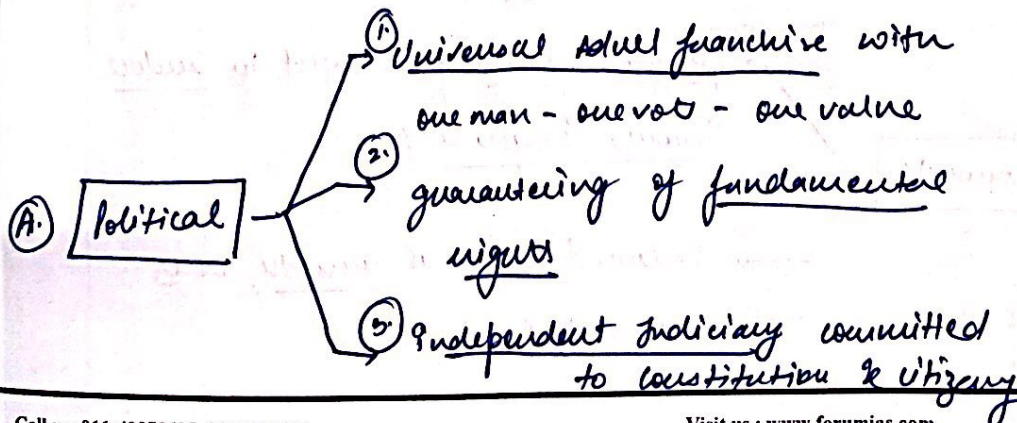 1. Universal Adult franchise with
one man - one vote - one value
2. guaranteeing of fundamental
rights
A. Political
3. Independent Judiciary committed
to constitution & citizenry
Visit us : www.forumias.com